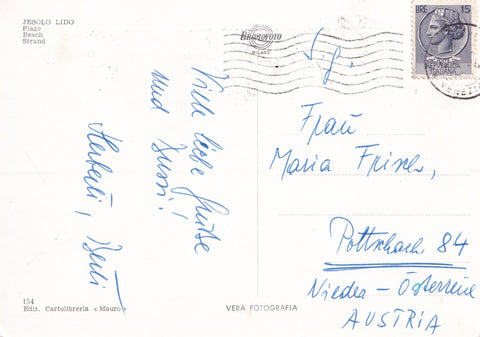 JESOLO LIDO
Plage
Beach
Strand
BROMOFOTO
MILANO
LIRE 15
REPUBBLICA
ITALIANA
VENEZIA
Viele liebe Grüße
und Bussi!
Herberti, Berti
Frau
Maria Frisch,
Pottschach 84
Nieder-Österreich
AUSTRIA
154
Ediz. Cartolibreria «Mauro»
VERA FOTOGRAFIA